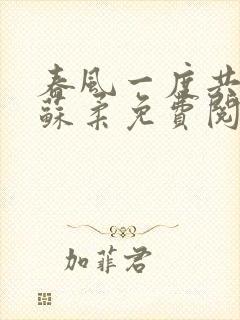 春風一度共
蘇柔免費閱
加菲君